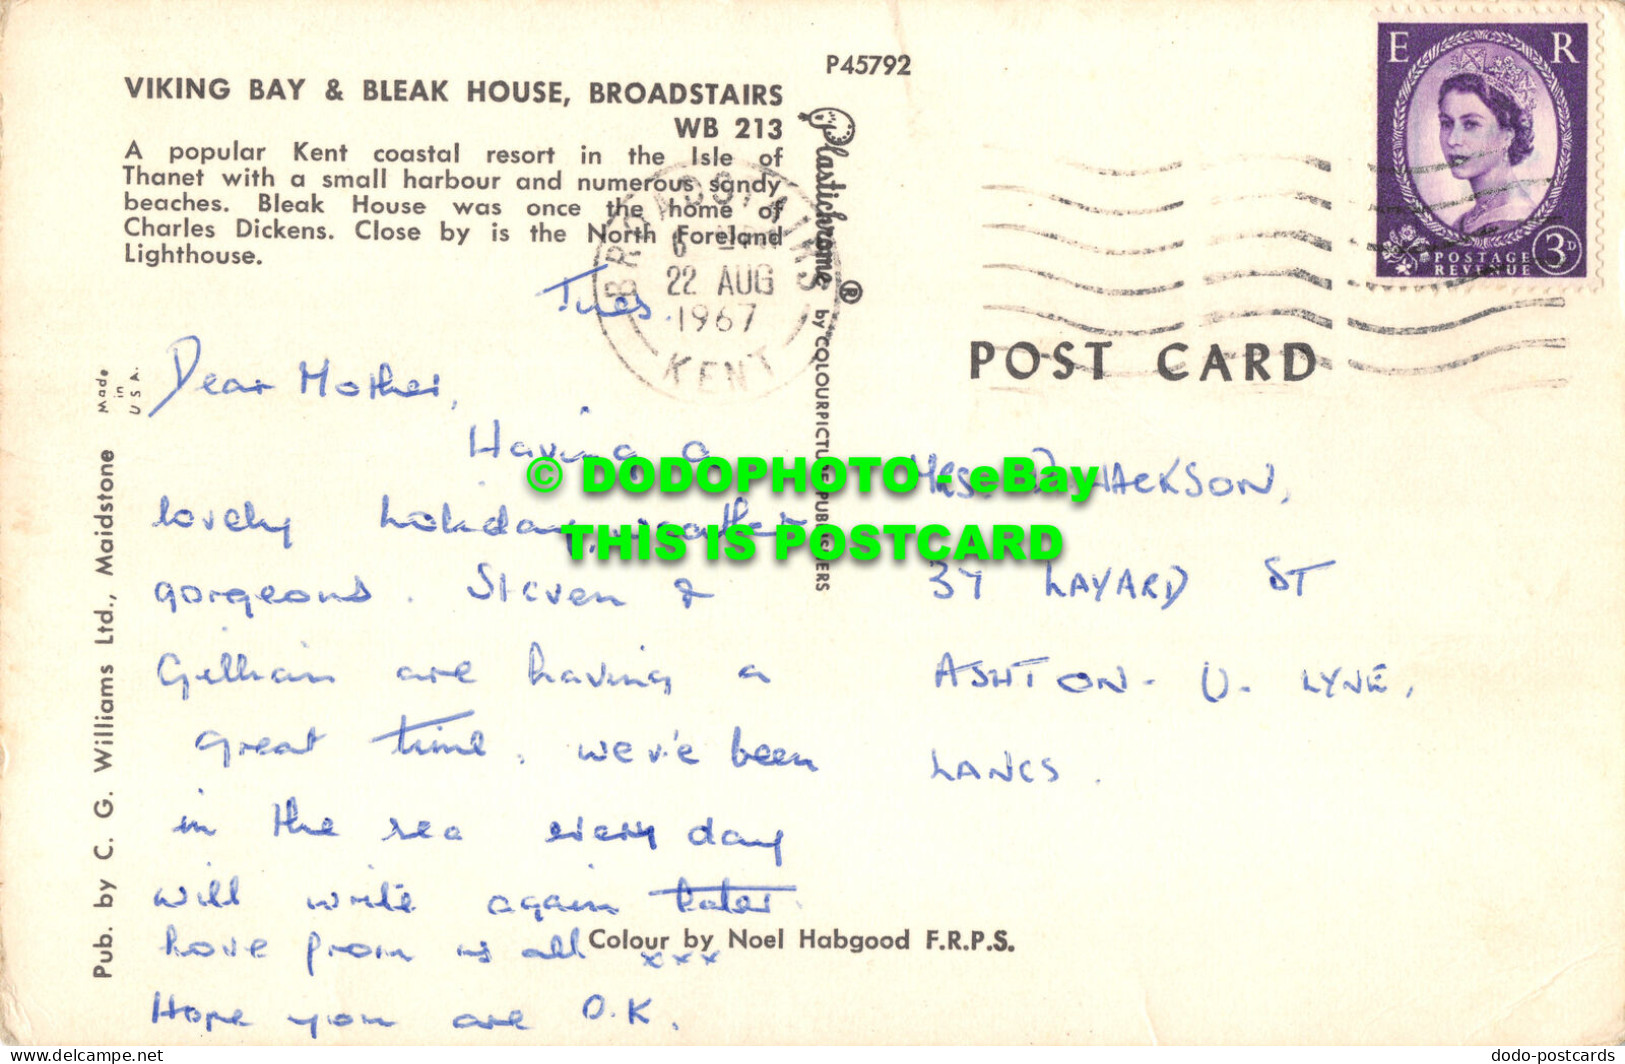 P45792
VIKING BAY & BLEAK HOUSE, BROADSTAIRS
WB 213
A popular Kent coastal resort in the Isle of
Thanet with a small harbour and numerous sandy
beaches. Bleak House was once the home of
Charles Dickens. Close by is the North Foreland
Lighthouse.
BROADSTAIRS
22 AUG
1967
KENT
E R
POSTAGE
REVENUE
3D
POST CARD
Plastichrome ® by COLOURPICTURE PUBLISHERS
Made
in
U S A.
Pub. by C. G. Williams Ltd., Maidstone
Tues.
Dear Mother,
Having a
lovely holiday, weather
gorgeous. Steven &
Gillian are having a
great time. we've been
in the sea every day
will write again later.
love from us all xxx
Hope you are O.K.
MRS. HACKSON,
37 LAYARD ST
ASHTON - U - LYNE,
LANCS.
Colour by Noel Habgood F.R.P.S.
© DODOPHOTO - eBay
THIS IS POSTCARD
www.delcampe.net
dodo-postcards